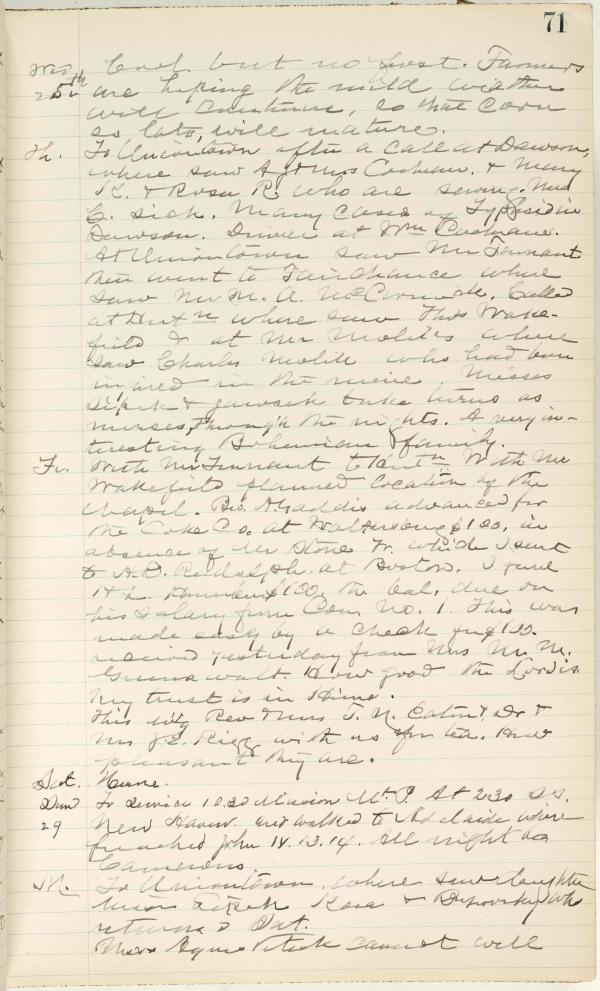 71
Wed. Cool but no frost. Farmers
25th are hoping the mild weather
will continue, so that corn
so late, will mature.
Th. To Uniontown after a call at Dawson,
where saw A J & Mrs Cochran, & Mary
K. & Rosa R. who are sewing. Mrs
C. sick. Many cases of Typhoid in
Dawson. Dinner at Wm Cochrans.
At Uniontown saw Mr Tennant
then went to Fairchance where
saw Mr M. A. McCormick. Called
at where saw Thos Wake-
field & at Mr where
saw Charles who had been
injured in the mine. Misses
& take turns as
nurses, through the nights. A very in-
teresting Bohemian family.
Fr. With Mr Tennant to With Mr
Wakefield planned location of the
chapel. Bro. A. Gaddis advanced for
the Coke Co. at $100, in
absence of Mr Stone Tr. which I sent
to H.B. at Boston. I gave
$100, the bal. due on
his salary from Com No. 1. This was
made easy by a check for $100.
received yesterday from Mrs M.
How good the Lord is.
My trust is in Him.
This evg Rev & Mrs T. N. Eaton & Dr &
Mrs J E. Rigg with us for tea. How
pleasant they are.
Sat. Home.
Sun To service 10.30 Mission Mt. P. At 2.30 S.S.
29 New Haven and walked to Adelaide where
preached John 14. 13.14. All night at
Camerons.
M. To Uniontown, where saw daughter
Miss Rosa & who
returned Sat.
Miss cannot well